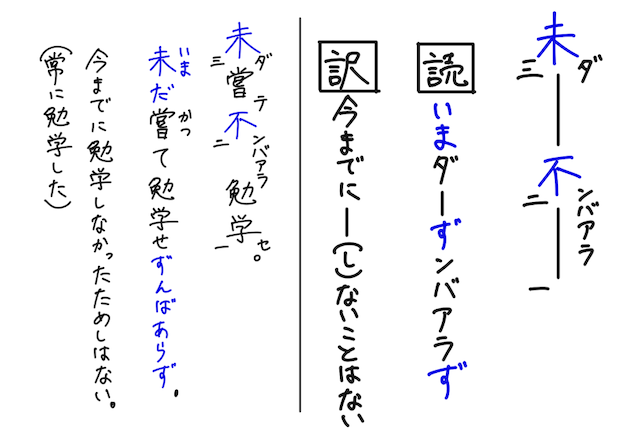 未ダ三―不ンバアラ二―一
読 いまダ―ずンバアラず
訳 今までに―(し)ないことはない
未ダ三嘗テ不ンバアラ二勉学一セ。
未だ嘗て勉学せずんばあらず。
いま かつ
今までに勉学しなかったためしはない。
(常に勉学した)